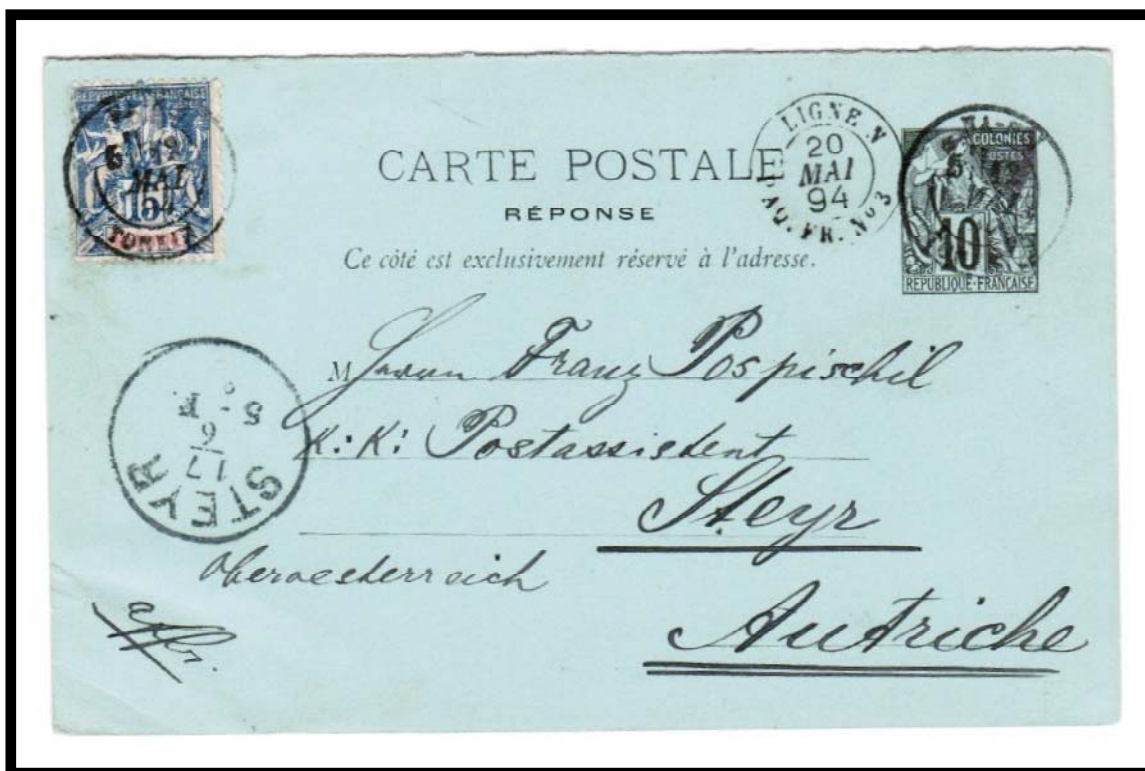 RÉPUBLIQUE FRANÇAISE
MAI
94
15
TONKIN
CARTE POSTALE
RÉPONSE
Ce côté est exclusivement réservé à l'adresse.
LIGNE N
20
MAI
94
PAQ. FR. No 3
COLONIES
POSTES
10
REPUBLIQUE-FRANÇAISE
M Herrn Franz Pospischil
K: K: Postassistent
Steyr
Oberoesterreich
Autriche
STEYR
17
6